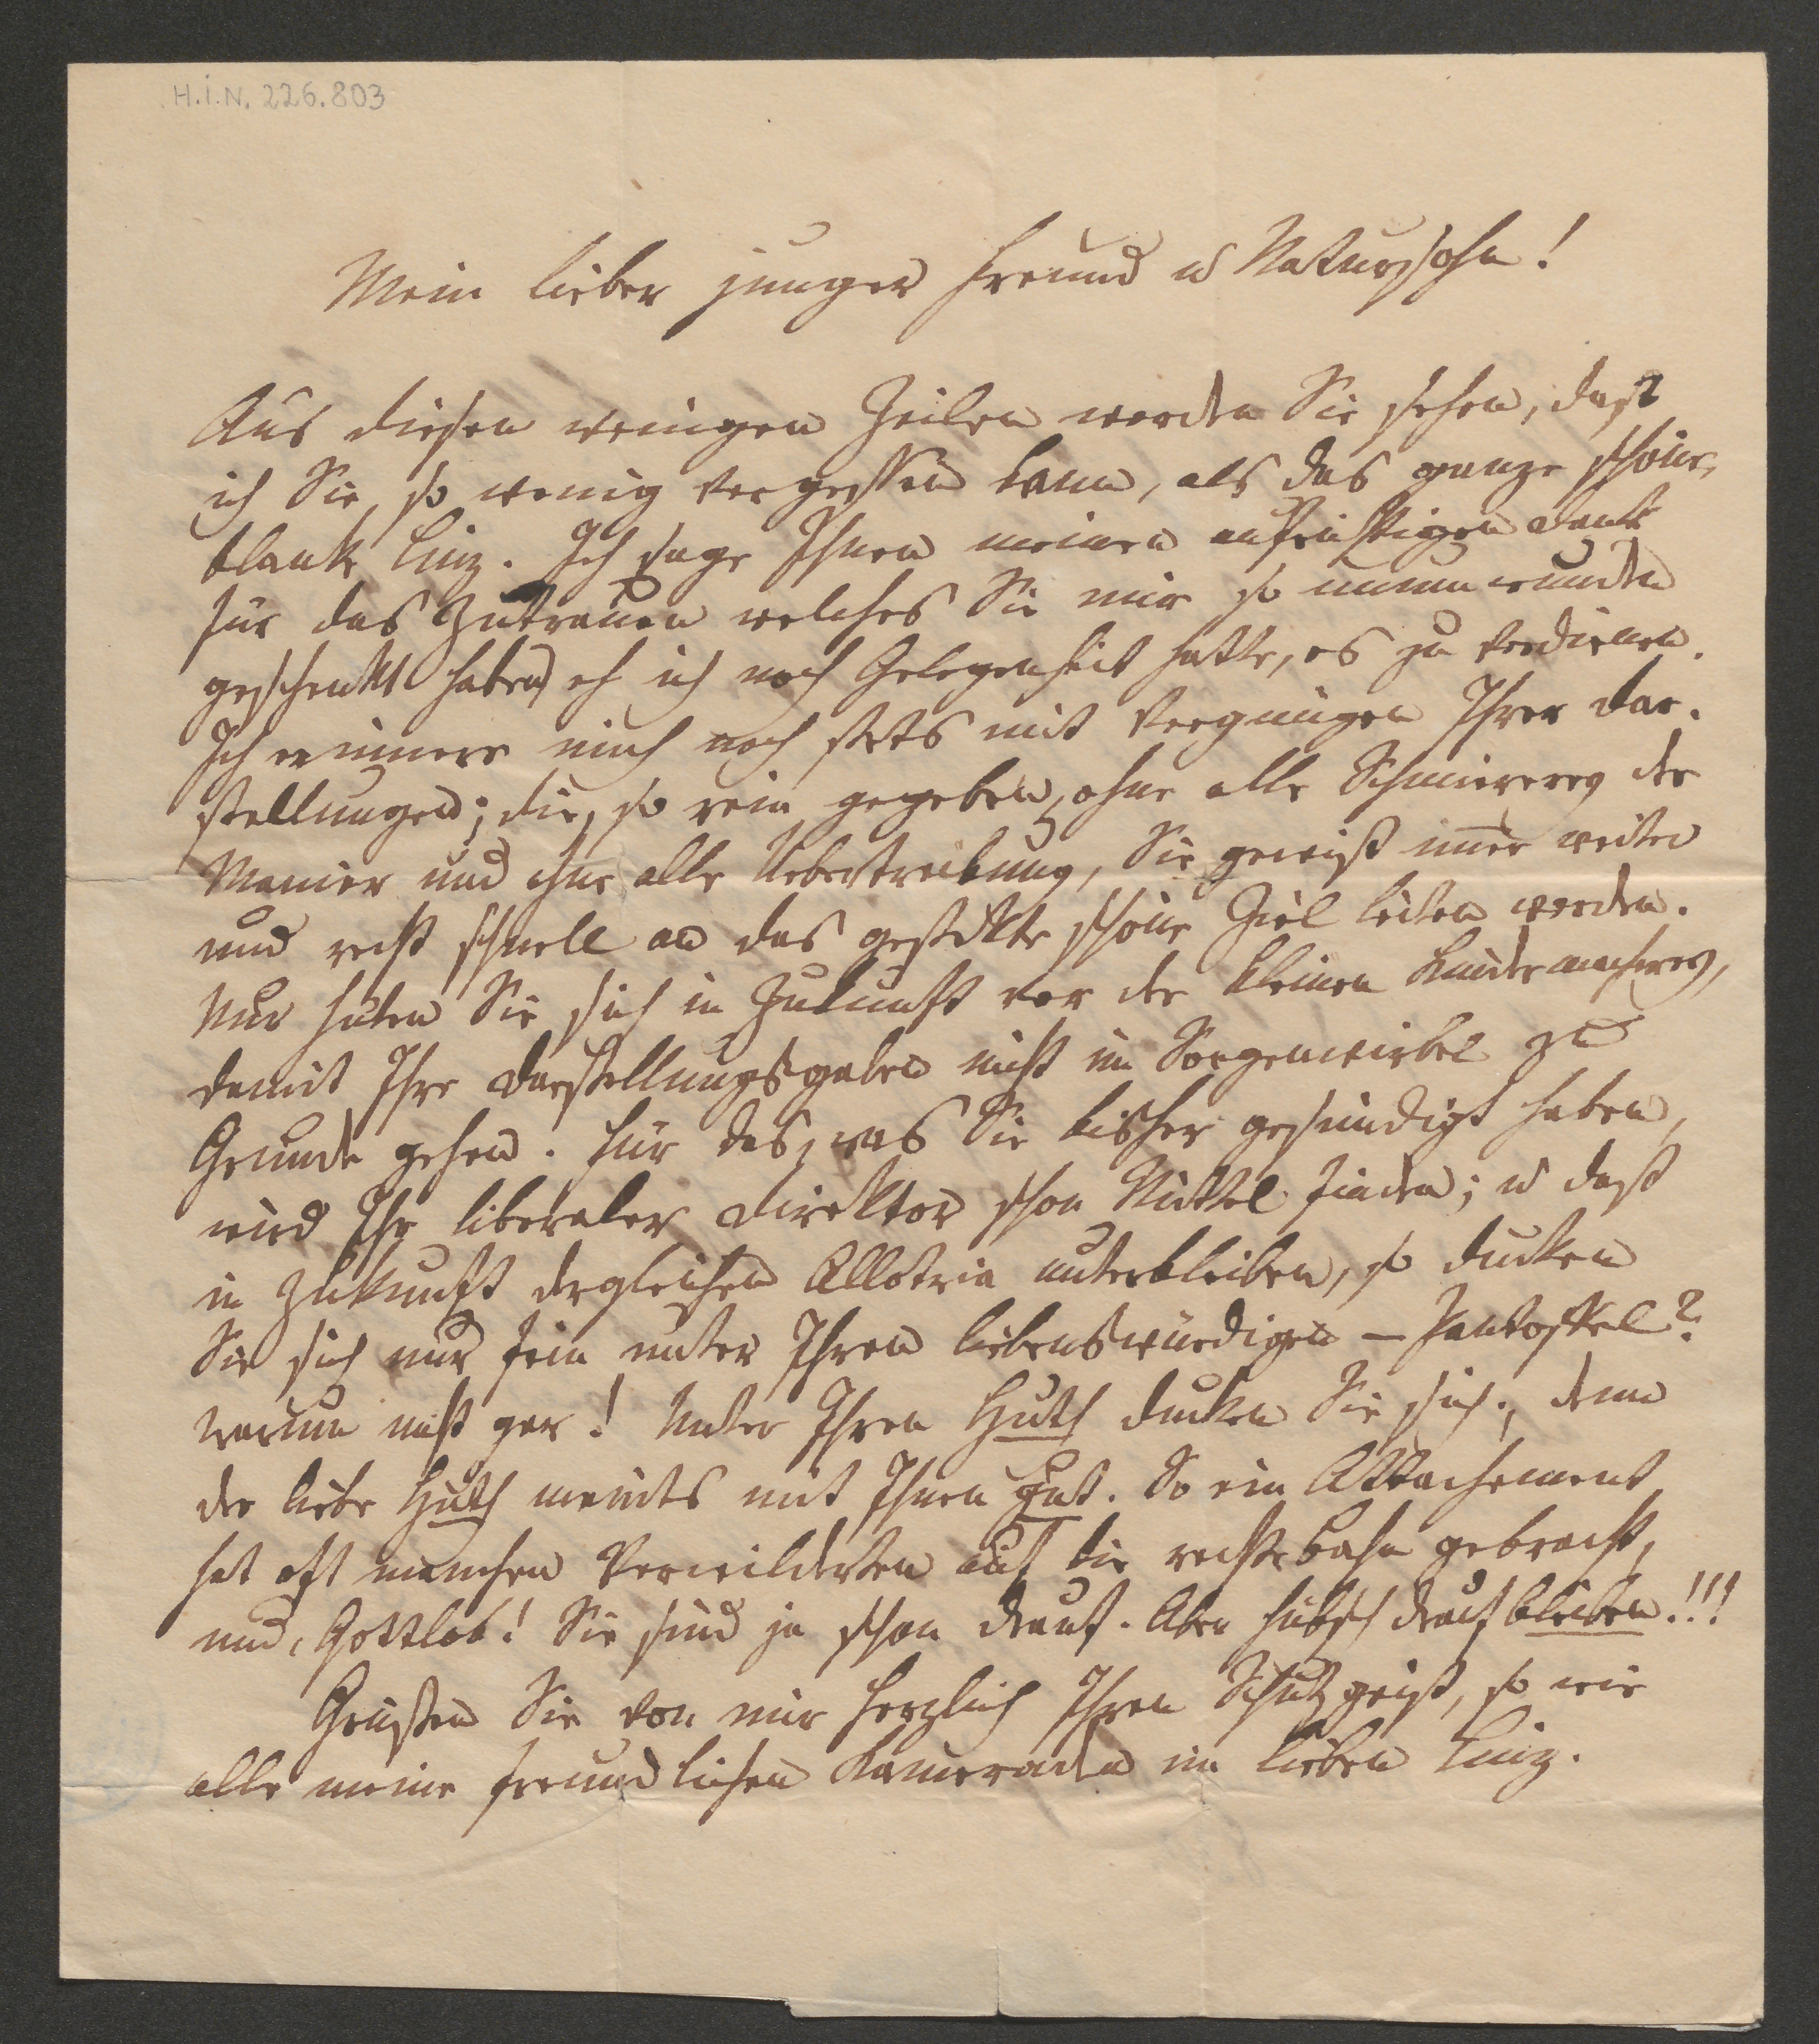 H.I.N. 226.803
Mein lieber junger Freund u Natursohn!
Aus diesen wenigen Zeilen werden Sie sehen, daß
ich Sie, so wenig vergessen kann, als das ganze schöne,
blanke Linz. Ich sage Ihnen meinen aufrichtigen Dank
für das Zutrauen welches Sie mir so unumwunden
geschenkt haben, eh ich noch Gelegenheit hatte, es zu verdienen.
Ich erinnere mich noch stets mit Vergnügen Ihrer Dar-
stellungen; die, so rein gegeben, ohne alle Schmiererey der
Manier und ohne alle Uebertreibung, Sie gewiß im̄er weiter
und recht schnell an das gesteckte schöne Ziel leiten werden.
Nur hüten Sie sich in Zukunft vor der kleinen Kindermacherey,
damit Ihre Darstellungsgaben nicht im Sorgenwirbel zu
Grunde gehen. Für das, was Sie bisher gesündigt haben,
wird Ihr liberaler Direktor schon Mittel finden; u daß
in Zukunft dergleichen Allotria unterbleiben, so ducken
Sie sich nur fein unter Ihren liebenswürdigen – Pantoffel?
warum nicht gar! Unter Ihren Huth ducken Sie sich; denn
der liebe Huth meints mit Ihnen gut. So ein Attachement
hat oft manchen Verwilderten auf die rechte Bahn gebracht,
und, Gottlob! Sie sind ja schon drauf. Aber hübsch drauf bleiben!!!
Grüßen Sie von mir herzlich Ihren Schutzgeist, so wie
alle meine freundlichen Kameraden im lieben Linz.